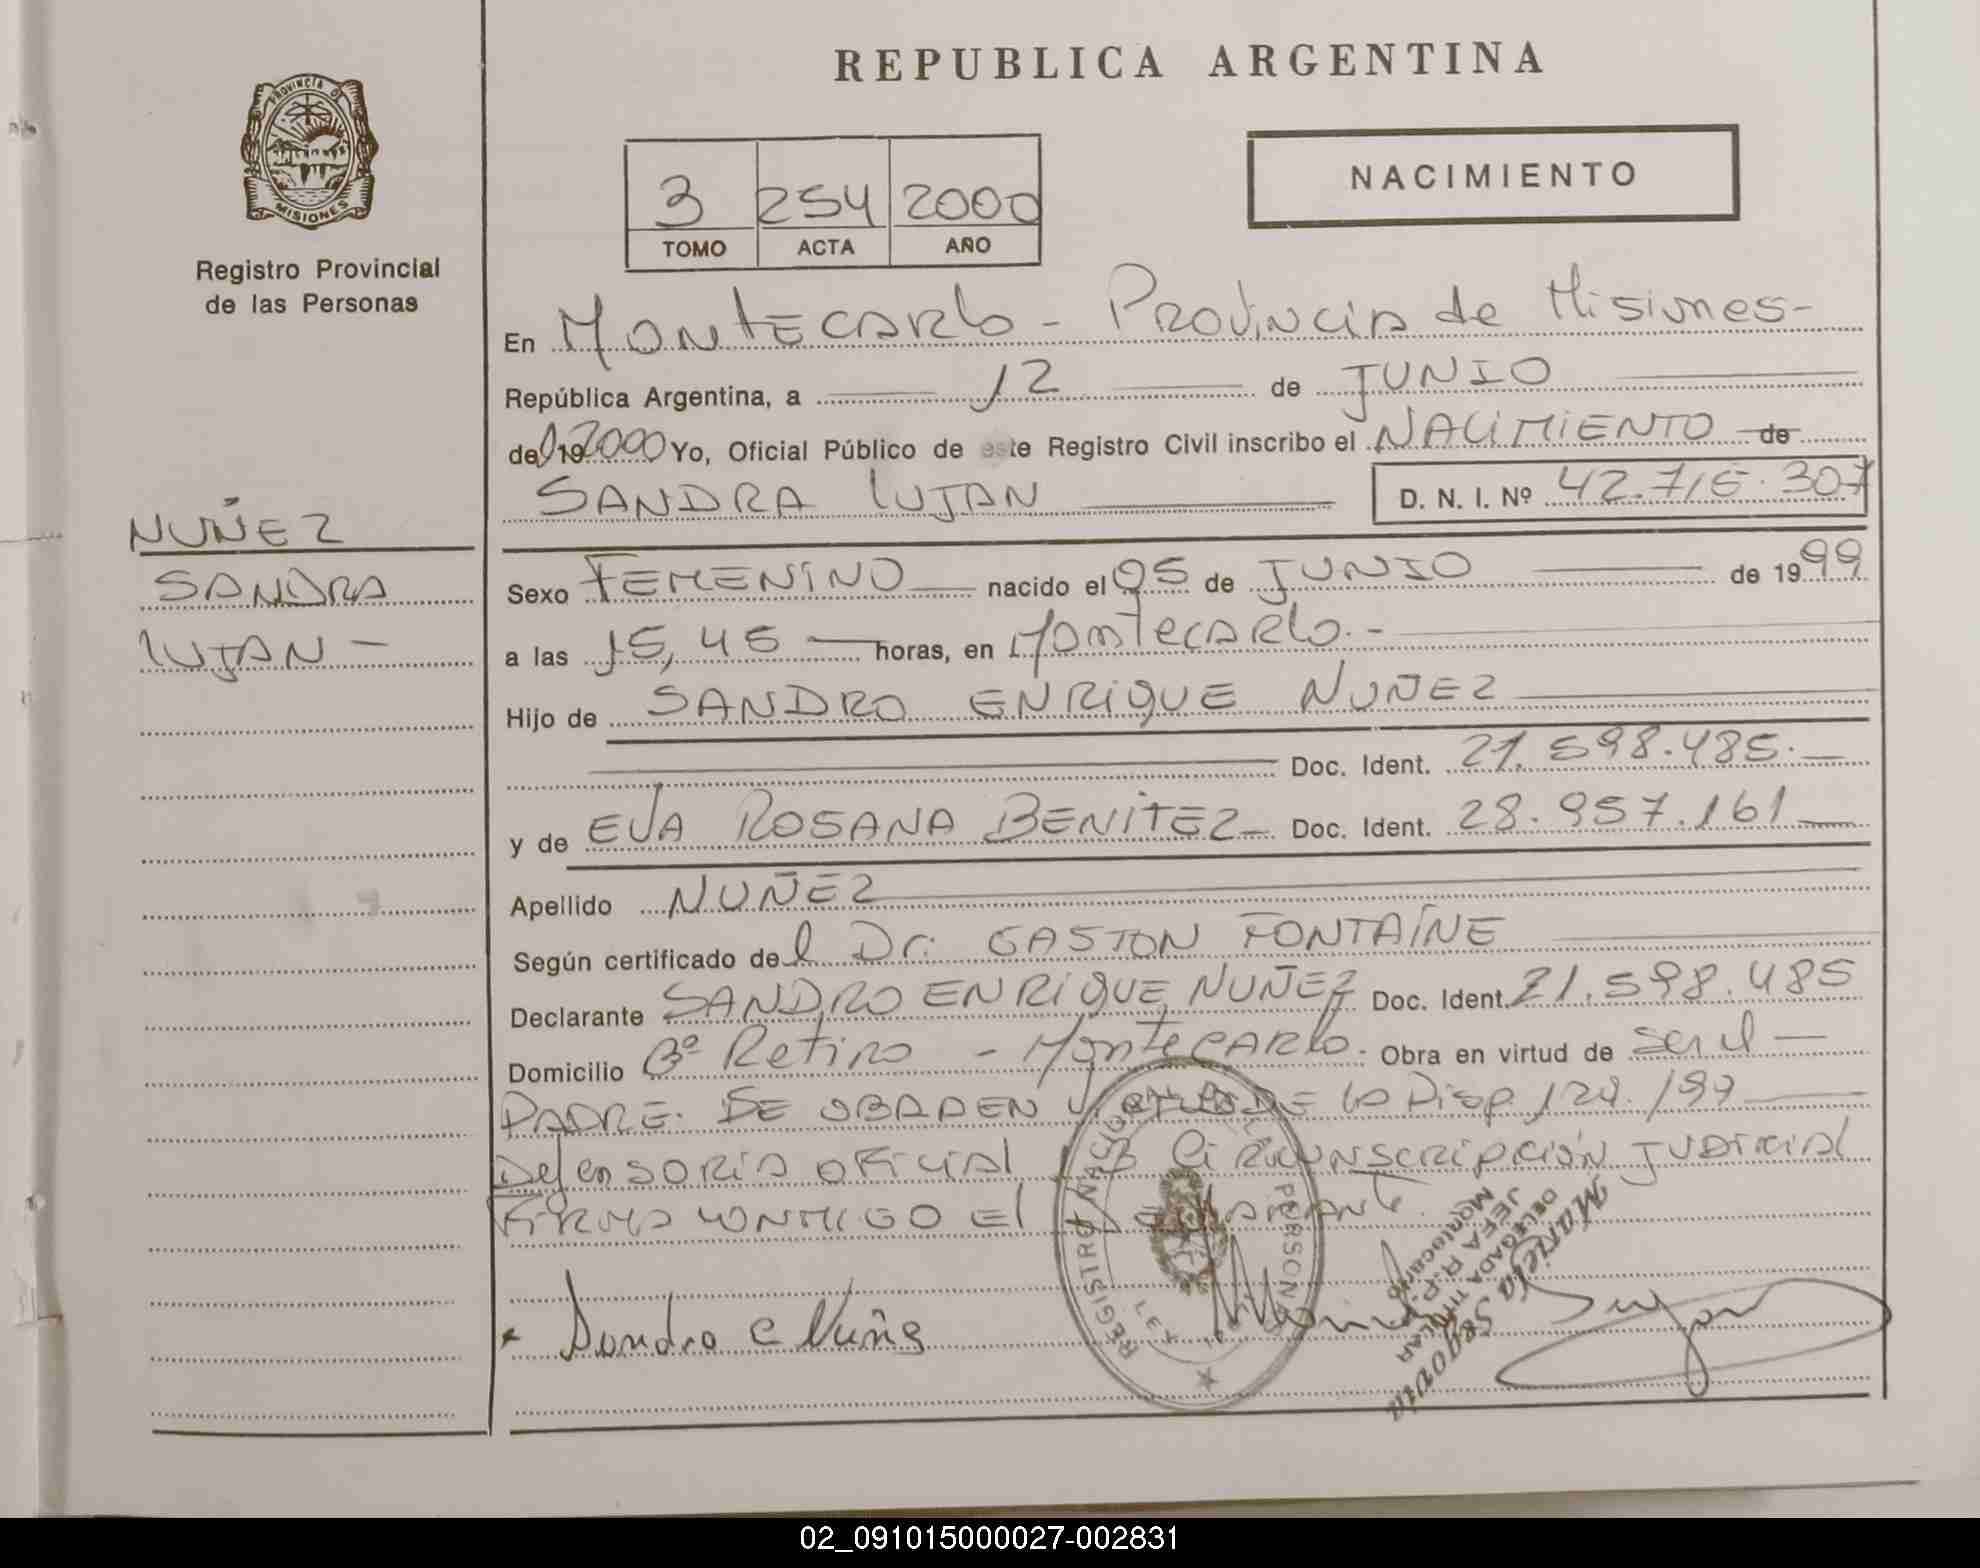 REPUBLICA ARGENTINA
PROVINCIA DE
MISIONES
Registro Provincial
de las Personas
3 254 2000
TOMO ACTA AÑO
NACIMIENTO
En MONTECARLO - PROVINCIA de Misiones-
República Argentina, a 12 de JUNIO
del 19 2000 Yo, Oficial Público de este Registro Civil inscribo el NACIMIENTO de
SANDRA LUJAN D. N. I. Nº 42.716.307
NUÑEZ
SANDRA
LUJAN -
Sexo FEMENINO nacido el 05 de JUNIO de 1999
a las 15,45 horas, en Montecarlo.-
Hijo de SANDRO ENRIQUE NUÑEZ
Doc. Ident. 21.598.485.-
y de EVA ROSANA BENITEZ Doc. Ident. 28.957.161
Apellido NUÑEZ
Según certificado del Dr. GASTON FONTAÍNE
Declarante SANDRO ENRIQUE NUÑEZ Doc. Ident. 21.598.485
Domicilio Bº Retiro - Montecarlo. Obra en virtud de ser el -
PADRE. SE OBRA EN VIRTUD DE la Disp.
Defensoria OFICIAL 3 Circunscripción JUDICIAL
FIRMA CONMIGO El Declarante.
Sandro E Nuñez
REGISTRO NACIONAL PERSONAS
Mariela Segovia
DELEGADA TITULAR
JEFA R.P.P.
Montecarlo
02_091015000027-002831